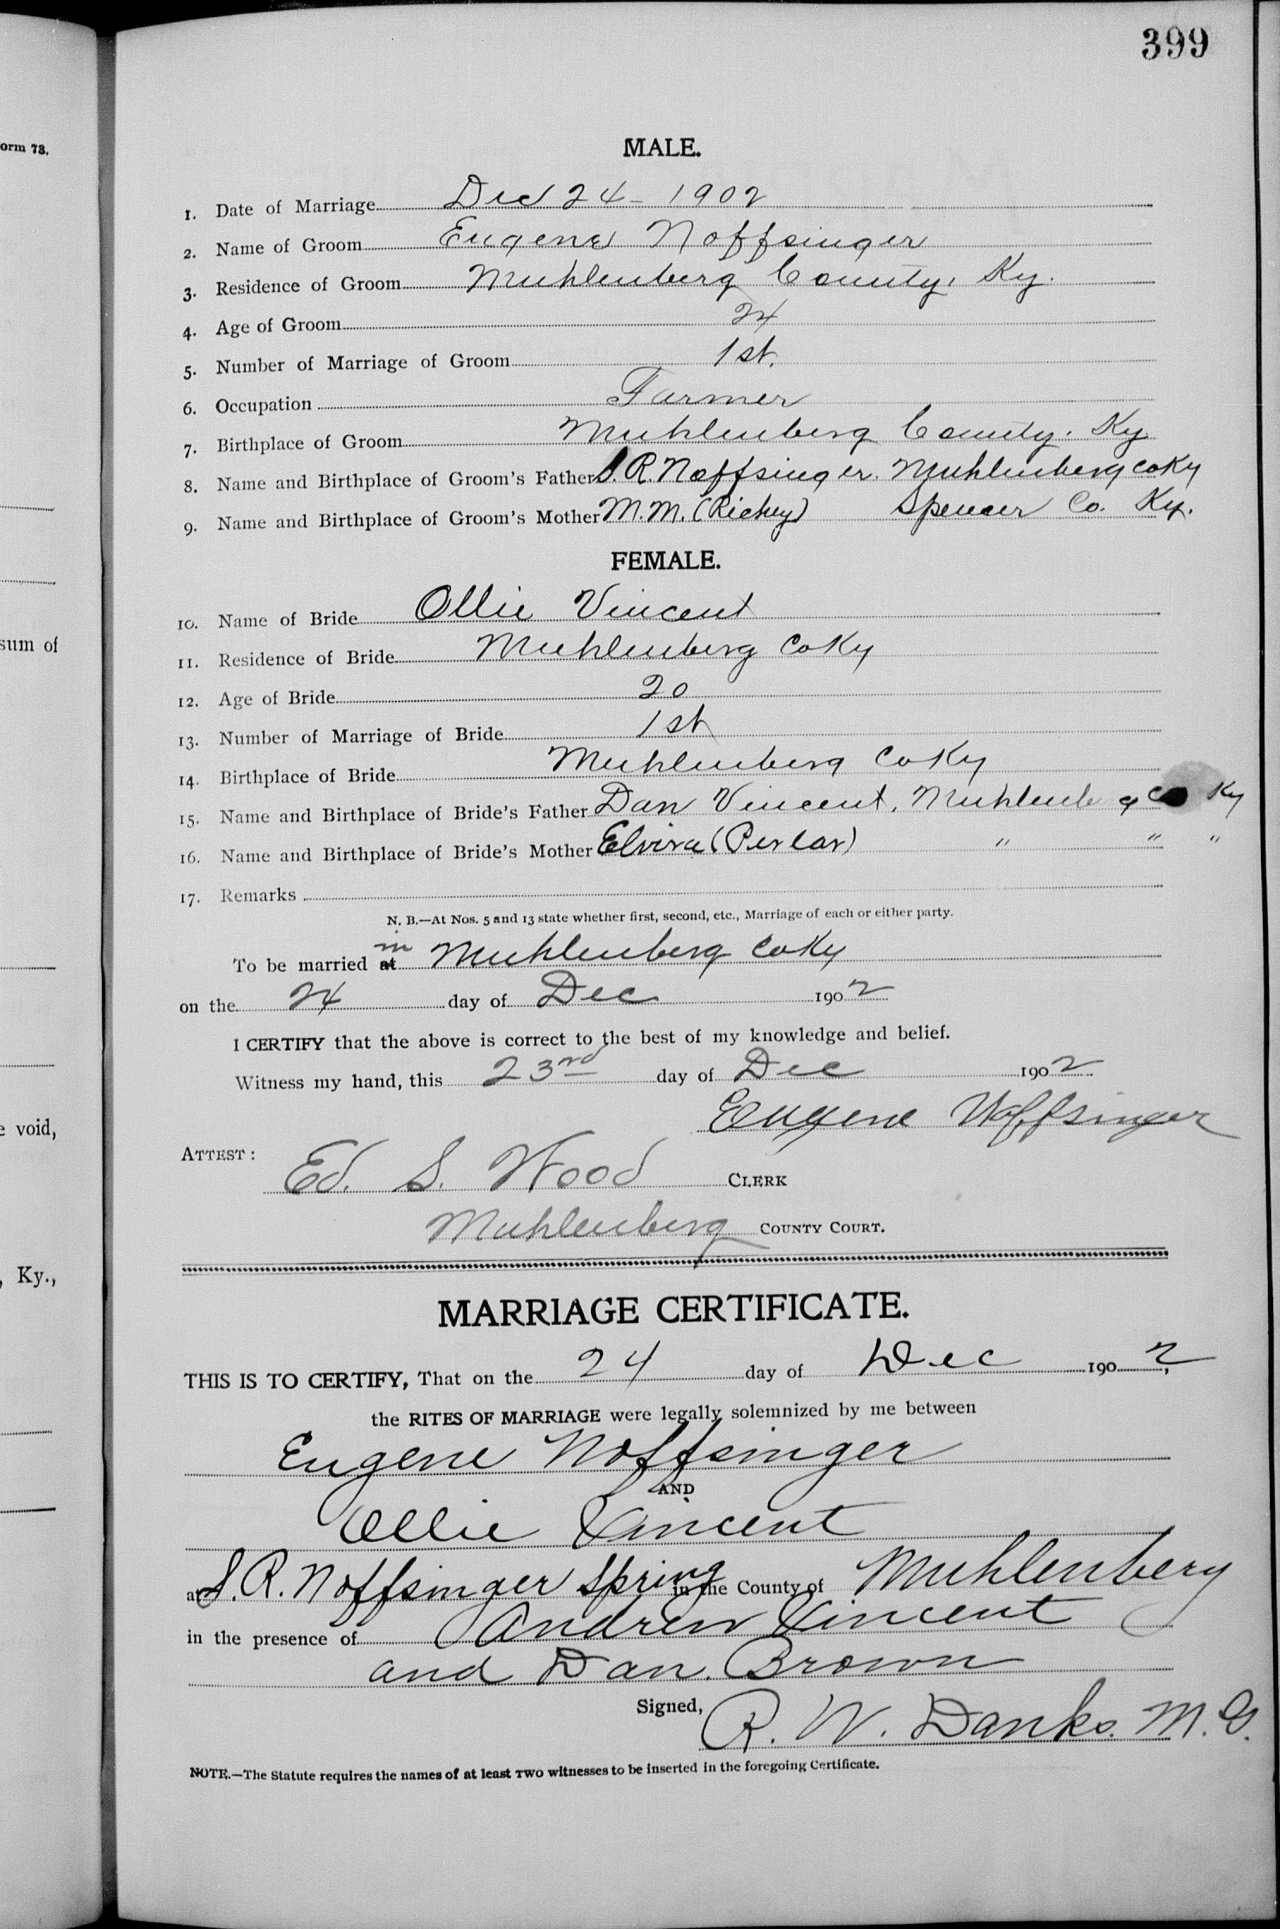 399
orm 73.
MALE.
1. Date of Marriage Dec 24 - 1902
2. Name of Groom Eugene Noffsinger
3. Residence of Groom Muhlenberg County, Ky.
4. Age of Groom 24
5. Number of Marriage of Groom 1st.
6. Occupation Farmer
7. Birthplace of Groom Muhlenberg County. Ky
8. Name and Birthplace of Groom's Father S. R. Noffsinger. Muhlenberg co Ky
9. Name and Birthplace of Groom's Mother M. M. (Richey) Spencer Co. Ky.
FEMALE.
10. Name of Bride Ollie Vincent
sum of
11. Residence of Bride Muhlenberg Co Ky
12. Age of Bride 20
13. Number of Marriage of Bride 1st
14. Birthplace of Bride Muhlenberg Co Ky
15. Name and Birthplace of Bride's Father Dan Vincent, Muhlenberg Co Ky
16. Name and Birthplace of Bride's Mother Elvira ( ) " " "
17. Remarks
N. B.—At Nos. 5 and 13 state whether first, second, etc., Marriage of each or either party.
in
To be married at Muhlenberg Co Ky
on the 24 day of Dec 1902
I CERTIFY that the above is correct to the best of my knowledge and belief.
Witness my hand, this 23rd day of Dec 1902
Eugene Noffsinger
e void,
ATTEST:
Ed. S. Wood CLERK
Muhlenberg COUNTY COURT.
, Ky.,
MARRIAGE CERTIFICATE.
THIS IS TO CERTIFY, That on the 24 day of Dec 1902,
the RITES OF MARRIAGE were legally solemnized by me between
Eugene Noffsinger
AND
Ollie Vincent
at S. R. Noffsinger Spring in the County of Muhlenberg
in the presence of Andrew Vincent
and Dan. Brown
Signed, R. W. Danks. M. G.
NOTE.—The Statute requires the names of at least TWO witnesses to be inserted in the foregoing Certificate.